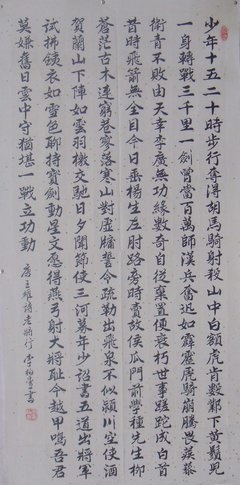 少年十五二十時步行奪得胡馬騎射殺山中白額虎肯數鄴下黃鬚兒
一身轉戰三千里一劍曾當百萬師漢兵奮迅如霹靂虜騎崩騰畏蒺藜
衛青不敗由天幸李廣無功緣數奇自從棄置便衰朽世事蹉跎成白首
昔時飛箭無全目今日垂楊生左肘路旁時賣故侯瓜門前學種先生柳
蒼茫古木連窮巷寥落寒山對虛牖誓令疏勒出飛泉不似潁川空使酒
賀蘭山下陣如雲羽檄交馳日夕聞節使三河募年少詔書五道出將軍
試拂鐵衣如雪色聊持寶劍動星文願得燕弓射大將恥令越甲鳴吾君
莫嫌舊日雲中守猶堪一戰立功勳
唐王維詩老將行 李 書